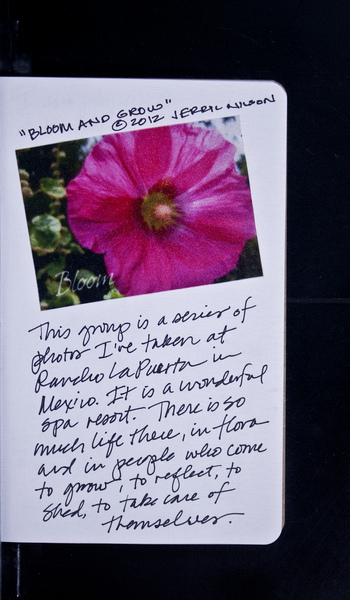 "BLOOM AND GROW"
©2012 JERRYL WILSON
Bloom
This group is a series of
photos I've taken at
Rancho La Puerta in
Mexico. It is a wonderful
spa resort. There is so
much life there, in flora
and in people who come
to grow, to reflect, to
shed, to take care of
themselves.